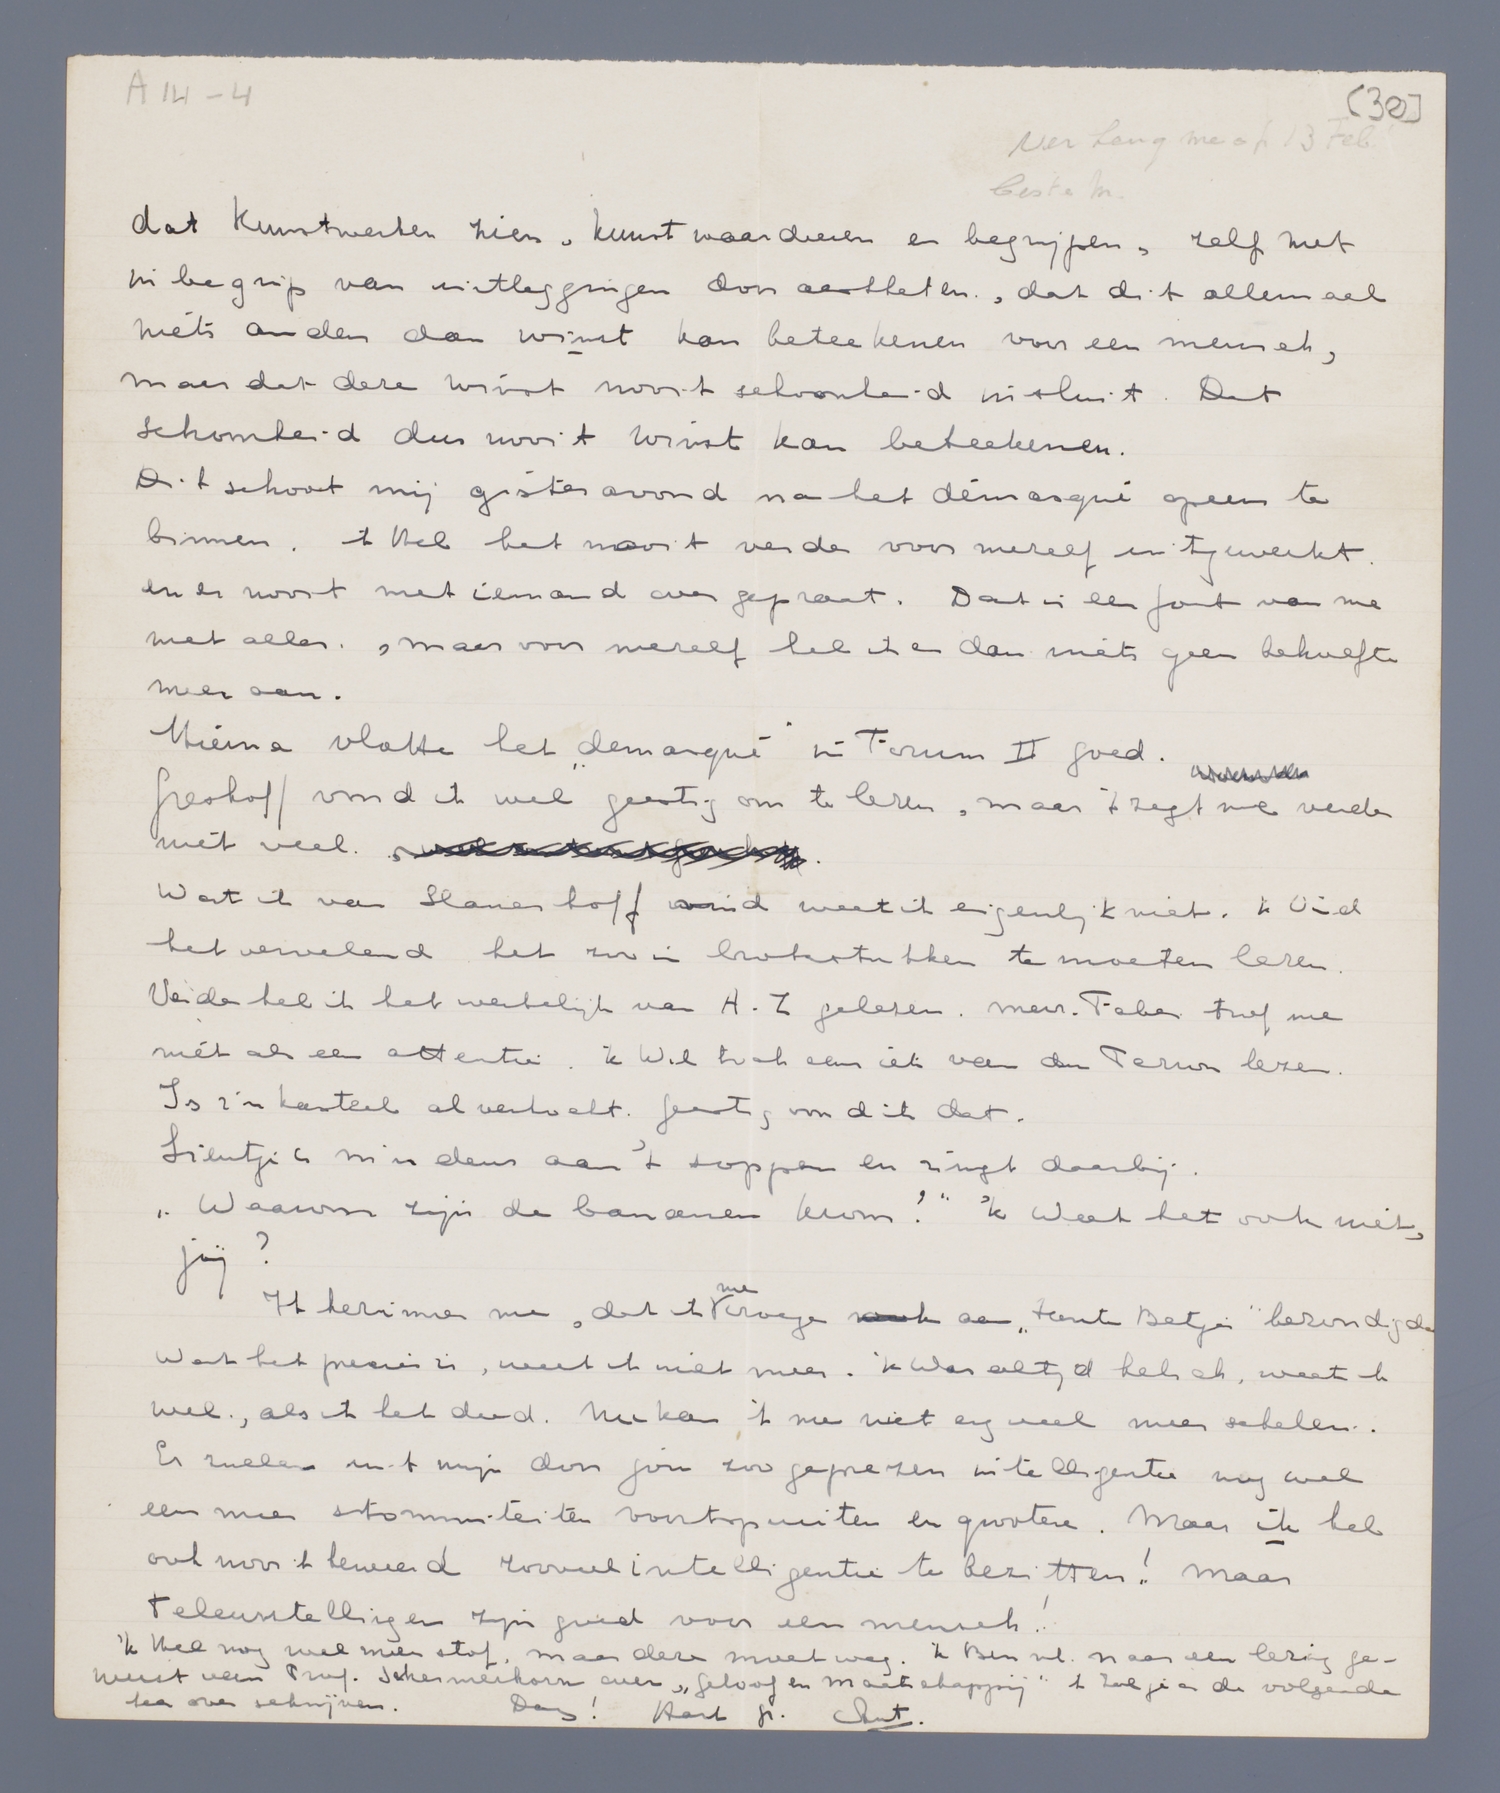 A 14 - 4
[30]
Verlang me op 13 Feb.
beste M.
dat Kunstwerken zien, kunst waardeeren en begrijpen, zelf met
inbegrip van uitleggingen door aestheten, dat dit allemaal
niéts anders dan winst kan beteekenen voor een mensch,
maar dat deze winst nooit schoonheid insluit. Dat
schoonheid dus nooit winst kan beteekenen.
Dit schoot mij gisteravond na het démasqué opeens te
binnen. ik Heb het nooit verder voor mezelf uitgewerkt.
en er nooit met iemand over gepraat. Dat is een fout van me
met alles, maar voor mezelf heb ik er dan niéts geen behoefte
meer aan.
Hiérna vlotte het „démasqué" in Forum II goed.
Greshoff vond ik wel geestig om te lezen, maar 't zegt me verder
niét veel.
Wat ik van Slauerhoff vind weet ik eigenlijk niet. 'k Vind
het vervelend het zoo in brokstukken te moeten lezen.
Verder heb ik het werkelijk van A-Z gelezen. Mevr. Faber trof me
niét als een attentie. 'k Wil toch eens iéts van den Person lezen.
Is z'n kasteel al verkocht. Geestig vond ik dat.
Lientje is m'n deur aan 't soppen en zingt daarbij.
„Waarom zijn de bananen krom!" 'k Weet het ook niét,
jij?
Ik herinner me, dat ik me vroeger aan „Tante Betje" bezondigde
Wat het precies is, weet ik niét meer. 'k Was altijd hels ah, weet ik
wel, als ik het deed. Nu kan 't me niet erg veel meer schelen.
Er zullen uit mijn door jou zoo geprezen intelligentie nog wel
een meer stommiteiten voortspruiten en grootere. Maar ik heb
ook nooit beweerd zooveel intelligentie te bezitten! Maar
Teleurstellingen zijn goed voor een mensch!
'k Heb nog wel meer stof, maar deze moet weg. 'k Ben nl. naar een lezing ge-
weest van Prof. Schermerhorn over „geloof en maatschappij" 'k Zal je er de volgende
keer over schrijven. Dag! Hart. gr. Ant.